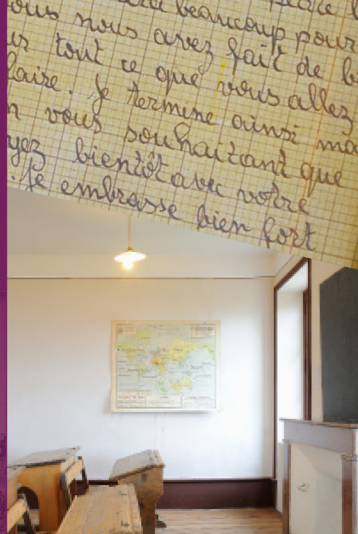 beaucoup pour
ous nous avez fait de b
us tout ce que vous allez
laire. Je termine ainsi ma
n vous souhaitant que
yez bientôt avec votre
. Je embrasse bien fort